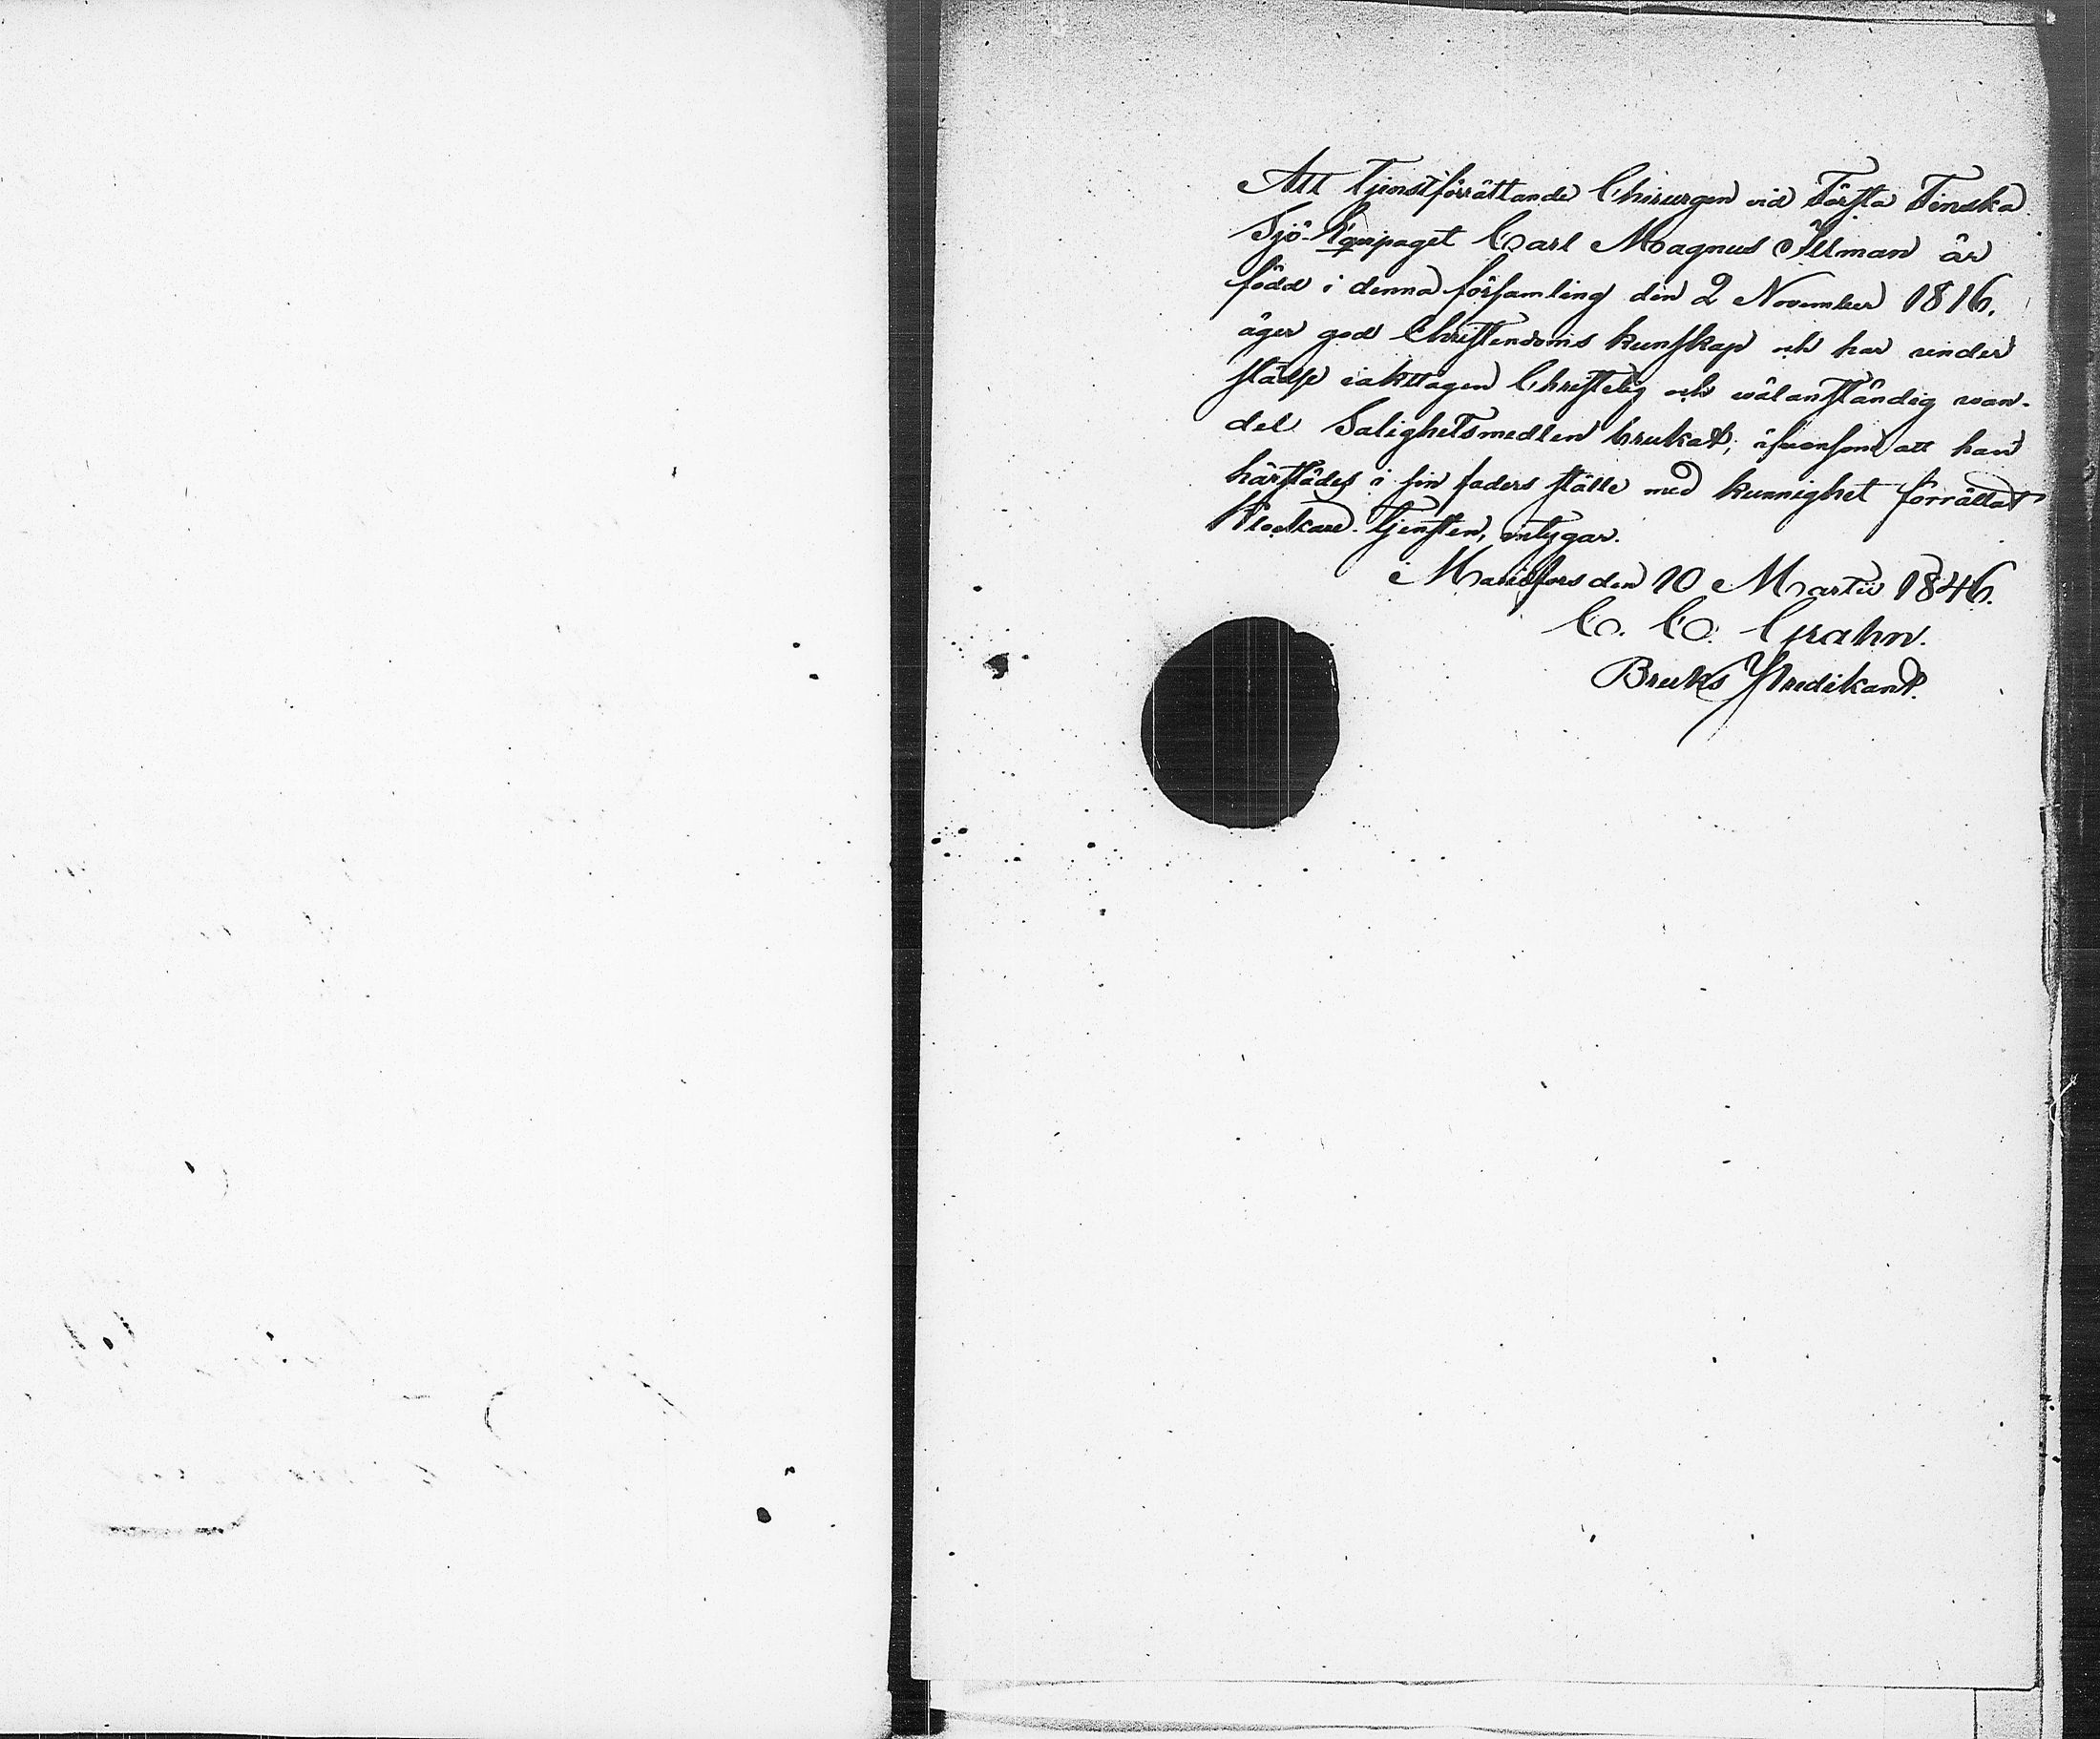 Att Tjenstförrättande Chirurgen vid Första Finska
Sjö-Equipaget Carl Magnus Illman är
född i denna församling den 2 November 1816,
äger god Christendoms kunskap och har under
städse iakttagen Christelig och wälanständig wan-
del Salighetsmedlen brukat, äfvensom att han
härstädes i sin faders ställe med kunnighet förrättat
Klockare-Tjensten, intygar.
Mariefors den 10 Martii 1846.
C. C. Grahn.
Bruks Predikant.